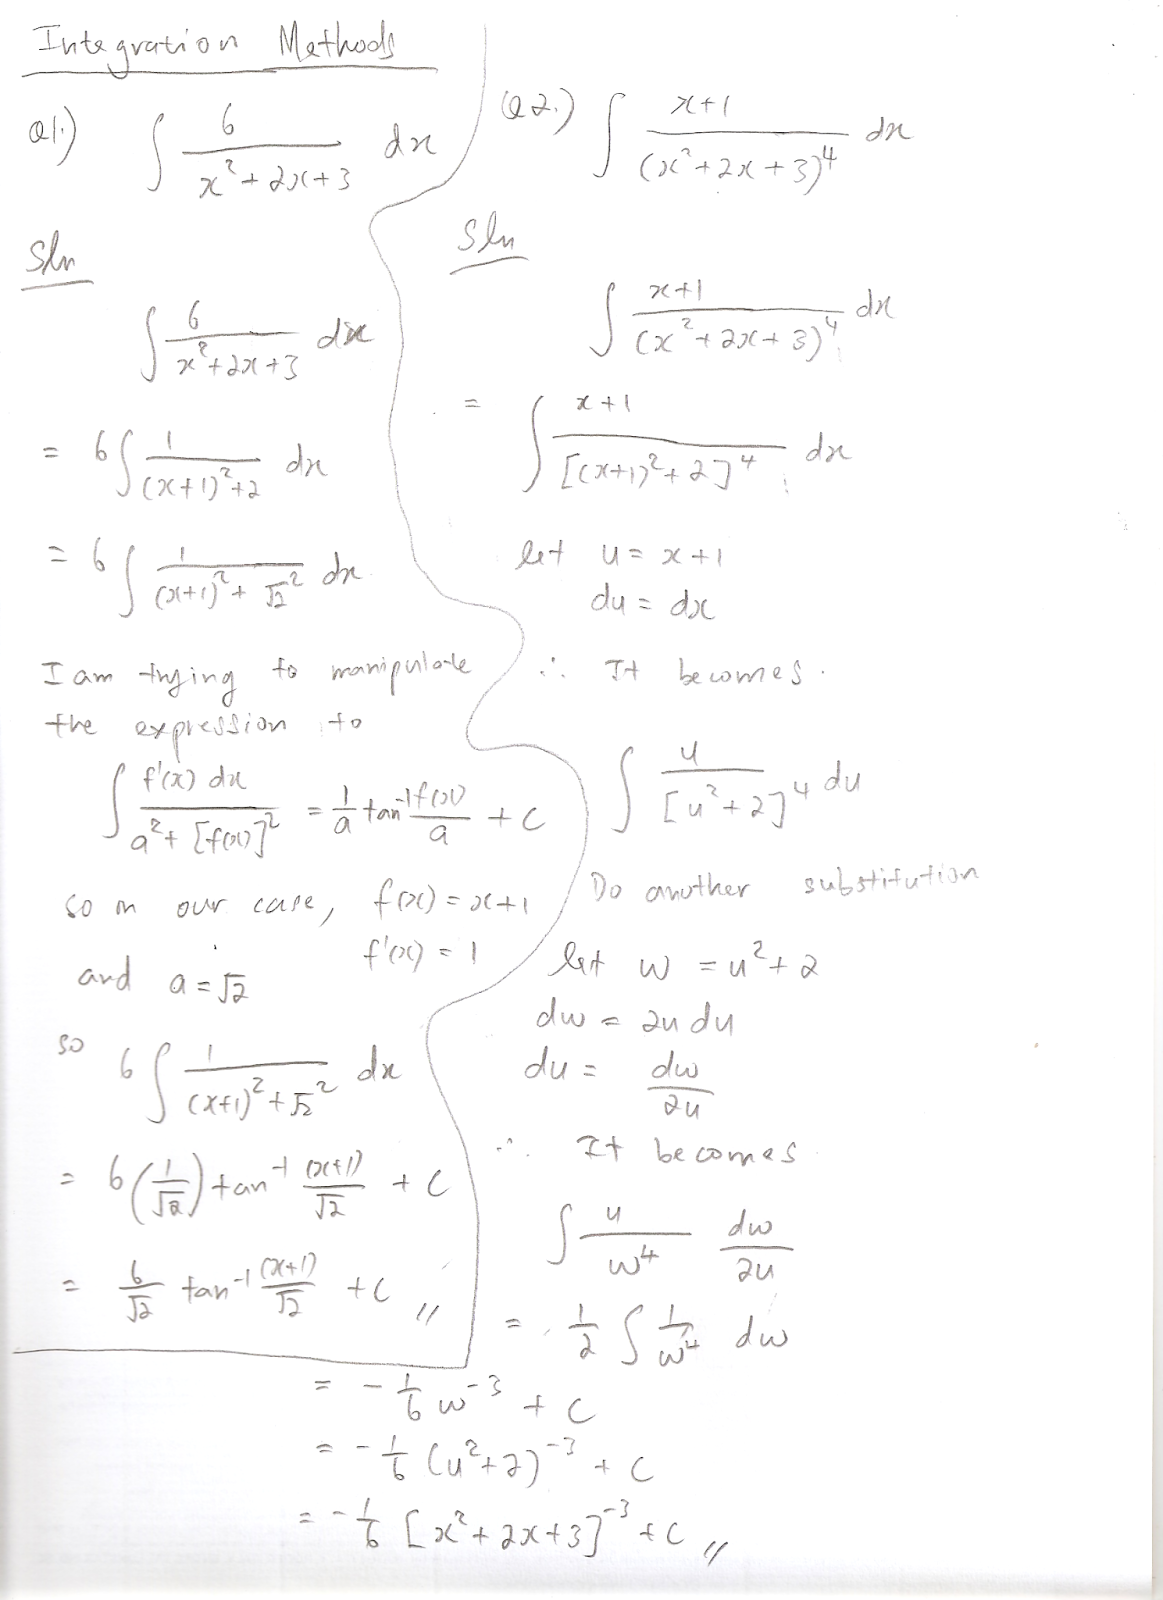 Integration Methods
Q1.) ∫ 6/(x²+2x+3) dx
Sln
∫ 6/(x²+2x+3) dx
= 6∫ 1/((x+1)²+2) dx
= 6∫ 1/((x+1)²+√2²) dx
I am trying to manipulate
the expression to
∫ f'(x) dx/(a²+[f(x)]²) = 1/a tan⁻¹ f(x)/a + C
so in our case, f(x) = x+1
f'(x) = 1
and a = √2
so 6∫ 1/((x+1)²+√2²) dx
= 6(1/√2) tan⁻¹ (x+1)/√2 + C
= 6/√2 tan⁻¹ (x+1)/√2 + C //
Q2.) ∫ (x+1)/(x²+2x+3)⁴ dx
Sln
∫ (x+1)/(x²+2x+3)⁴ dx
= ∫ (x+1)/[(x+1)²+2]⁴ dx
let u = x+1
du = dx
∴ It becomes.
∫ u/[u²+2]⁴ du
Do another substitution
let w = u²+2
dw = 2u du
du = dw/2u
∴ It becomes
∫ u/w⁴ dw/2u
= 1/2 ∫ 1/w⁴ dw
= -1/6 w⁻³ + C
= -1/6 (u²+2)⁻³ + C
= -1/6 [x²+2x+3]⁻³ + C //